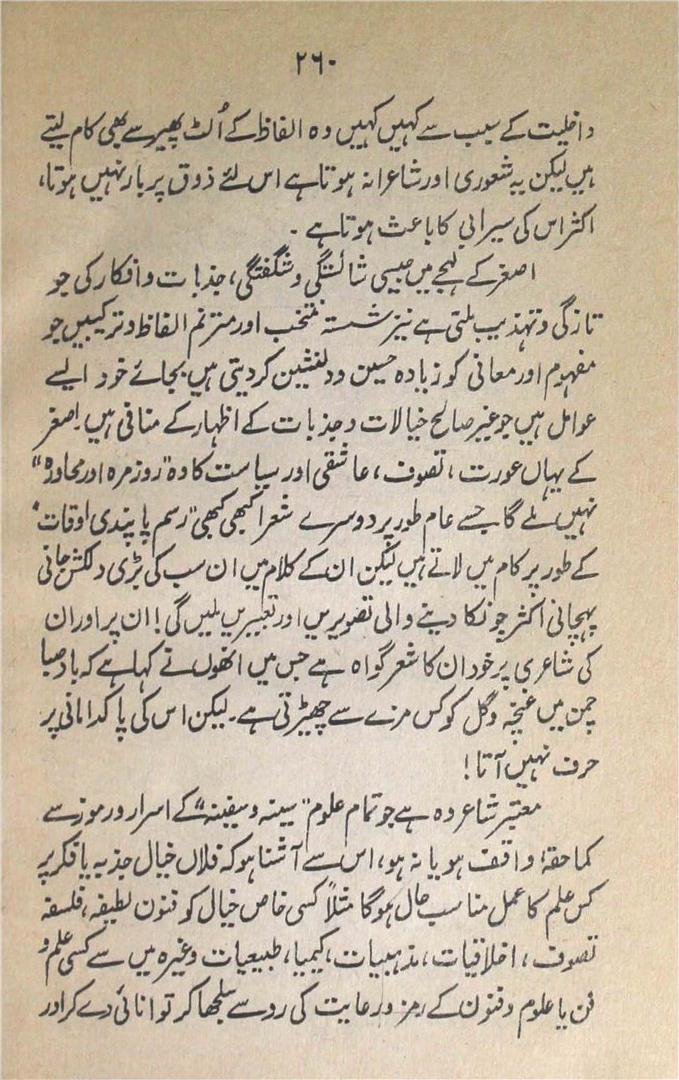 ۲۶۰
داخلیت کے سبب سے کہیں کہیں وہ الفاظ کے اُلٹ پھیر سے بھی کام لیتے
ہیں لیکن یہ شعوری اور شاعرانہ ہوتا ہے اس لئے ذوق پر بار نہیں ہوتا،
اکثر اس کی سیرابی کا باعث ہوتا ہے ۔
اصغر کے لہجے میں جیسی شائستگی و شگفتگی، جذبات و افکار کی جو
تازگی و تہذیب ملتی ہے نیز شستہ منتخب اور مترنم الفاظ و ترکیبیں جو
مفہوم اور معانی کو زیادہ حسین و دلنشین کر دیتی ہیں بجائے خود ایسے
عوامل ہیں جو غیر صالح خیالات و جذبات کے اظہار کے منافی ہیں۔ اصغر
کے یہاں عورت، تصوف، عاشقی اور سیاست کا وہ "روزمرہ اور محاورہ"
نہیں ملے گا جسے عام طور پر دوسرے شعرا کبھی کبھی "رسم پابندی اوقات"
کے طور پر کام میں لاتے ہیں لیکن ان کے کلام میں ان سب کی بڑی دلکش جانی
پہچانی اکثر چونکا دینے والی تصویریں اور تعبیریں ملیں گی! ان پر اور ان
کی شاعری پر خود ان کا شعر گواہ ہے جس میں انھوں نے کہا ہے کہ باد صبا
چمن میں غنچہ و گل کو کس مزے سے چھیڑتی ہے۔ لیکن اس کی پاکدامانی پر
حرف نہیں آتا!
معتبر شاعر وہ ہے جو تمام علوم "سینہ و سفینہ" کے اسرار و رموز سے
کماحقہٗ واقف ہو یا نہ ہو، اس سے آشنا ہو کہ فلاں خیال جذبہ یا فکر پر
کس علم کا عمل مناسب حال ہوگا مثلاً کسی خاص خیال کو فنون لطیفہ، فلسفہ
تصوف، اخلاقیات، مذہبیات، کیمیا، طبیعیات وغیرہ میں سے کسی علم و
فن یا علوم و فنون کے رمز و رعایت کی رو سے سلجھا کر توانائی دے کر اور